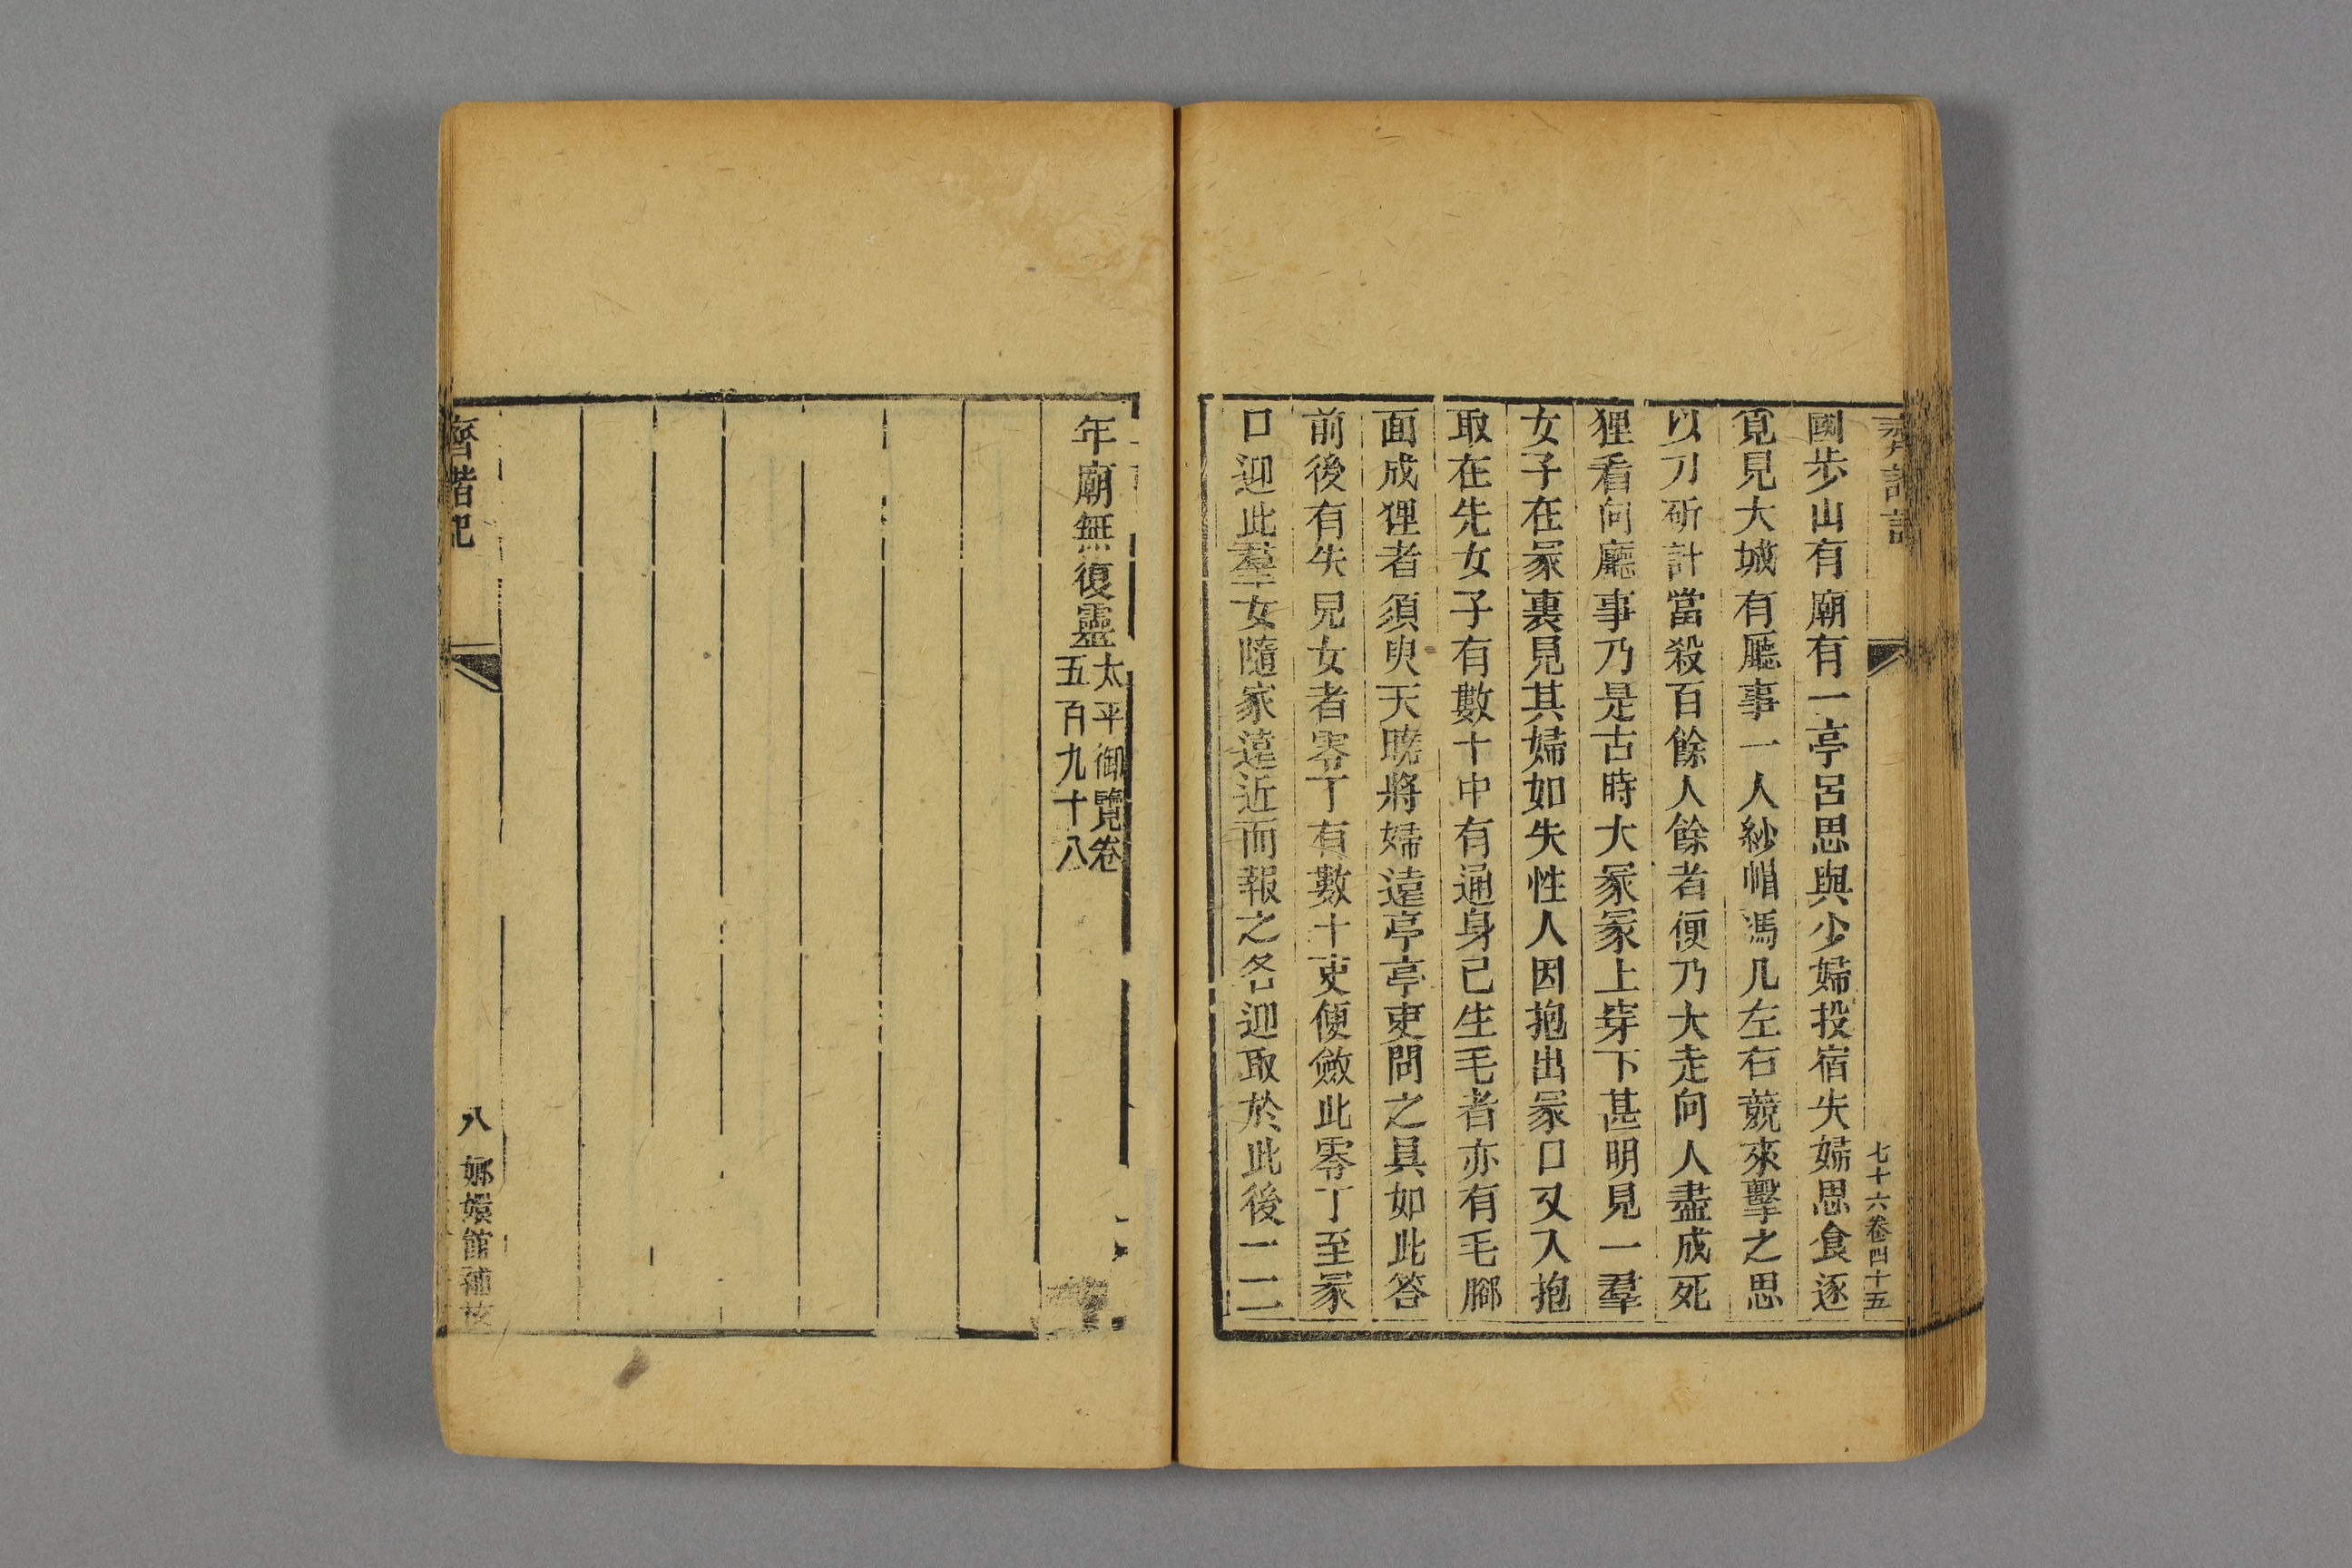 七十六卷四十五
國步山有廟有一亭呂思與少婦投宿失婦思食逐
覓見大城有廳事一人紗帽馮几左右競來擊之思
以刀斫計當殺百餘人餘者便乃大走向人盡成死
狸看向廳事乃是古時大冢冢上穿下甚明見一羣
女子在冢裏見其婦如失性人因抱出冢口又入抱
取在先女子有數十中有通身已生毛者亦有毛腳
面成狸者須臾天曉將婦還亭亭吏問之具如此答
前後有失兒女者零丁有數十吏便斂此零丁至冢
口迎此羣女隨家遠近而報之各迎取於此後一二
年廟無復靈
太平御覽卷
五百九十八
齊諧記
八
嫏嬛館補校